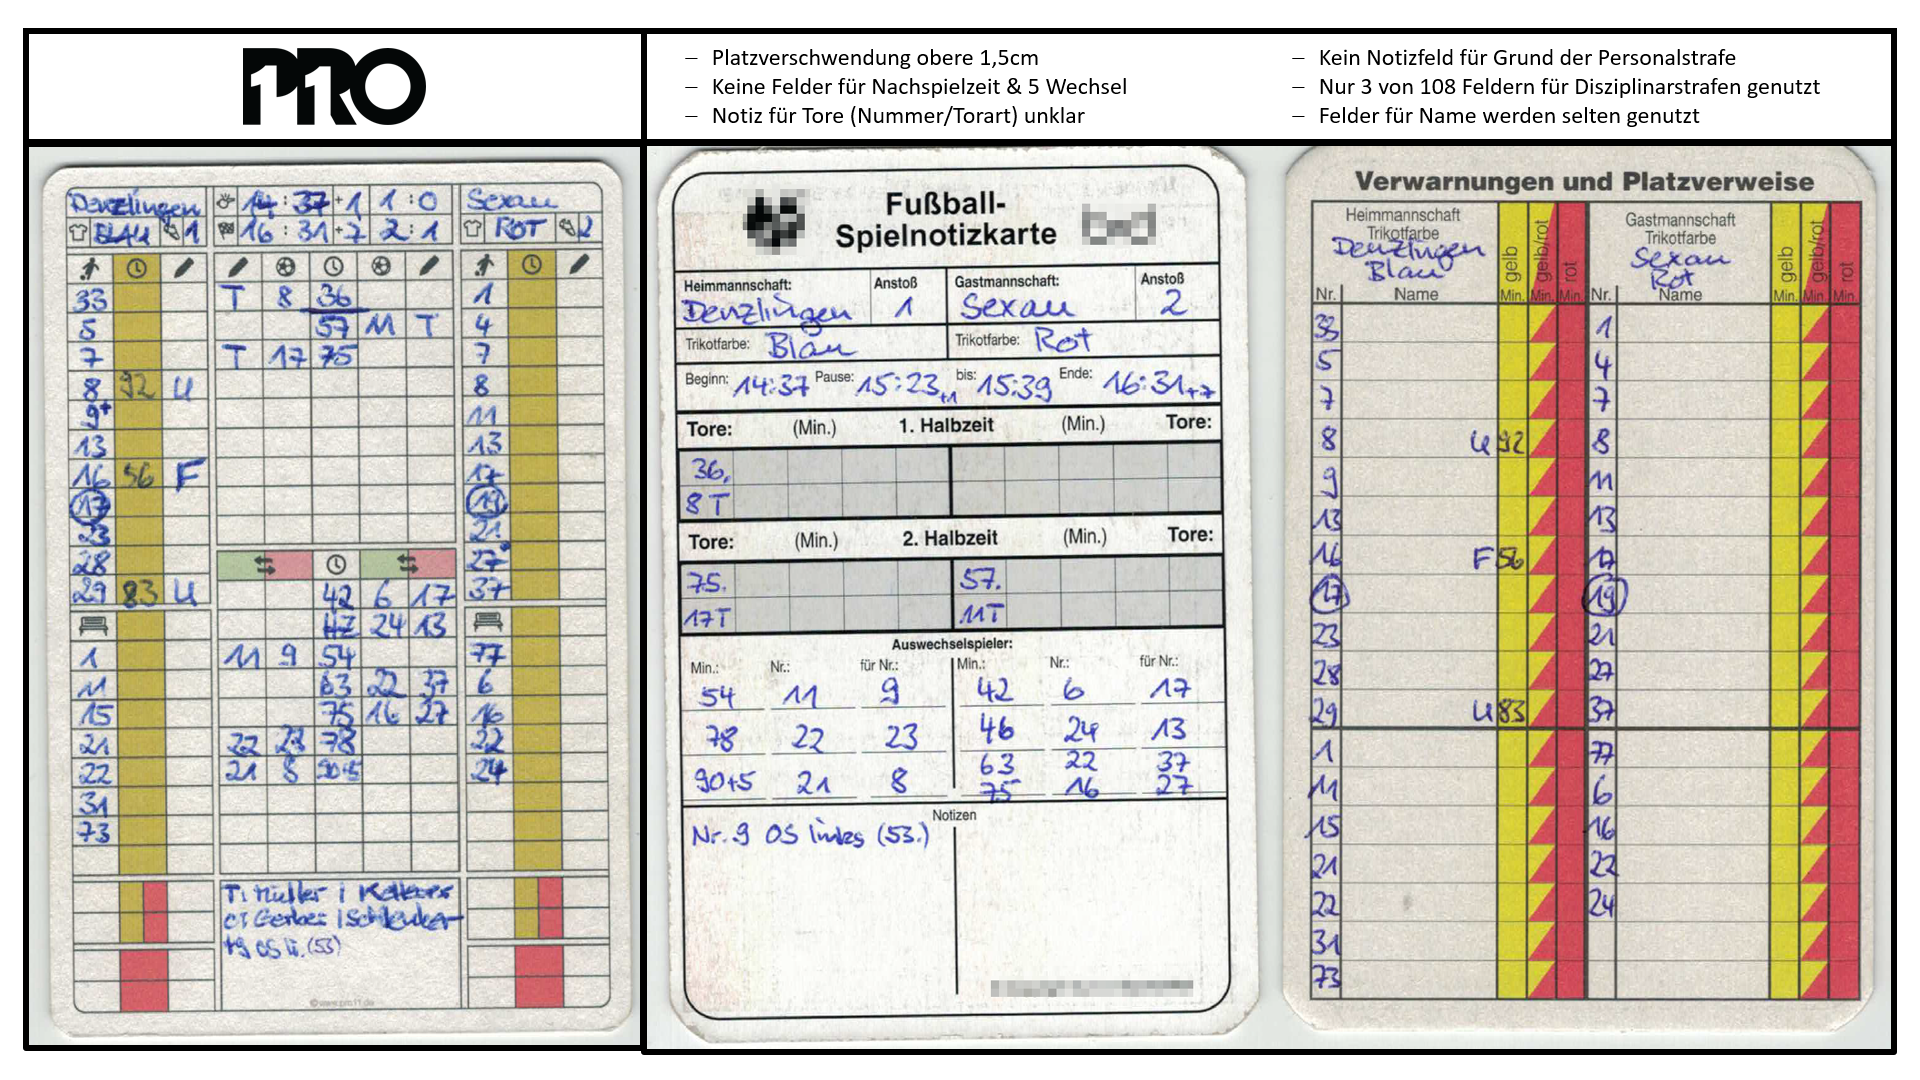 PRO11
– Platzverschwendung obere 1,5cm
– Keine Felder für Nachspielzeit & 5 Wechsel
– Notiz für Tore (Nummer/Torart) unklar
– Kein Notizfeld für Grund der Personalstrafe
– Nur 3 von 108 Feldern für Disziplinarstrafen genutzt
– Felder für Name werden selten genutzt
Denzlingen 14:37+1 1:0 Sexau
BLAU 1 16:31+7 2:1 ROT 2
33 T 8 36 1
5 57 11 T 4
7 T 17 75 7
8 92 U 8
9+ 11
13 13
16 56 F 17
17 19
23 21
28 27
29 83 U 42 6 17 37
24 13
1 11 9 54 77
11 63 22 37 6
15 75 16 27 16
21 22 23 78 22
22 21 8 90+5 24
31
73
T: Müller |
Gerber |
+9 OS li. (53)
©www.pro11.de
Fußball-
Spielnotizkarte
Heimmannschaft: Anstoß Gastmannschaft: Anstoß
Denzlingen 1 Sexau 2
Trikotfarbe: Blau Trikotfarbe: Rot
Beginn: 14:37 Pause: 15:23+1 bis: 15:39 Ende: 16:31+7
Tore: (Min.) 1. Halbzeit (Min.) Tore:
36.
8 T
Tore: (Min.) 2. Halbzeit (Min.) Tore:
75. 57.
17T 11T
Auswechselspieler:
Min.: Nr.: für Nr.: Min.: Nr.: für Nr.:
54 11 9 42 6 17
78 22 23 46 24 13
63 22 37
90+5 21 8 75 16 27
Notizen
Nr. 9 OS links (53.)
Verwarnungen und Platzverweise
Heimmannschaft Gastmannschaft
Trikotfarbe Trikotfarbe
Denzlingen Sexau
Blau Rot
gelb gelb/rot rot gelb gelb/rot rot
Nr. Name Min. Min. Min. Nr. Name Min. Min. Min.
33 1
5 4
7 7
8 U 92 8
9 11
13 13
16 F 56 17
17 19
23 21
28 27
29 U 83 37
1 77
11 6
15 16
21 22
22 24
31
73